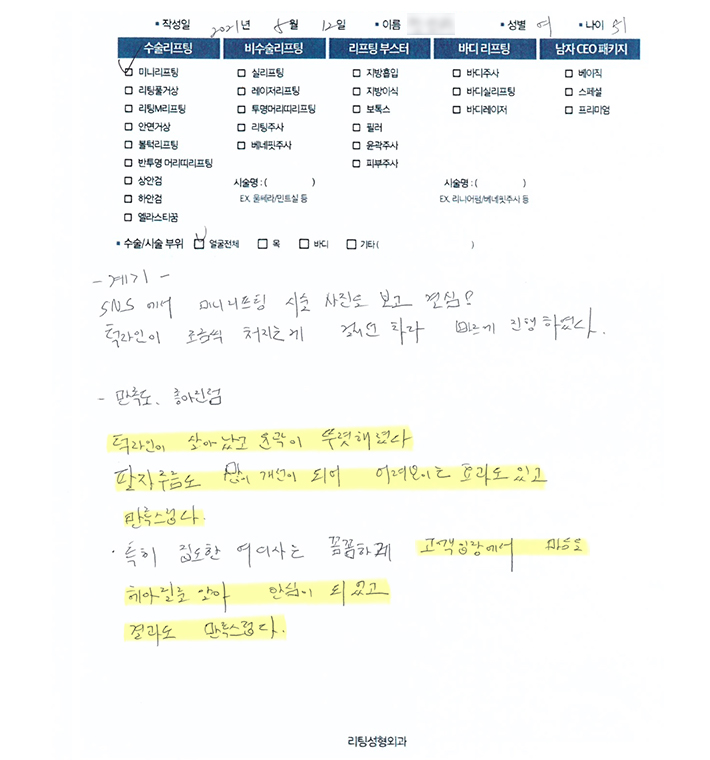 ▪ 작성일 2021년 8월 12일 ▪ 이름 ▪ 성별 여 ▪ 나이
수술리프팅 비수술리프팅 리프팅 부스터 바디 리프팅 남자 CEO 패키지
미니리프팅 실리프팅 지방흡입 바디주사 베이직
리팅풀거상 레이저리프팅 지방이식 바디실리프팅 스페셜
리팅M리프팅 투명머리띠리프팅 보톡스 바디레이저 프리미엄
안면거상 리팅주사 필러
볼턱리프팅 베네핏주사 윤곽주사
반투명 머리띠리프팅 피부주사
상안검 시술명 : ( ) 시술명 : ( )
하안검 EX. 울쎄라/민트실 등 EX. 리니어펌/베네핏주사 등
엘라스티꿈
▪ 수술/시술 부위 얼굴전체 목 바디 기타 ( )
- 계기 -
SNS에서 미니리프팅 시술 사진도 보고 결심?
턱라인이 조금씩 처지는게 하다 빠르게 진행하였다.
- 만족도, 좋아진점
턱라인이 살아났고 윤곽이 뚜렷해졌다
팔자주름도 많이 개선이 되어 어려보이는 효과도 있고
만족스럽다.
· 특히 집도한 여의사는 꼼꼼하게 고객입장에서 마음을
헤아릴줄 알아 안심이 되었고
결과도 만족스럽다.
리팅성형외과